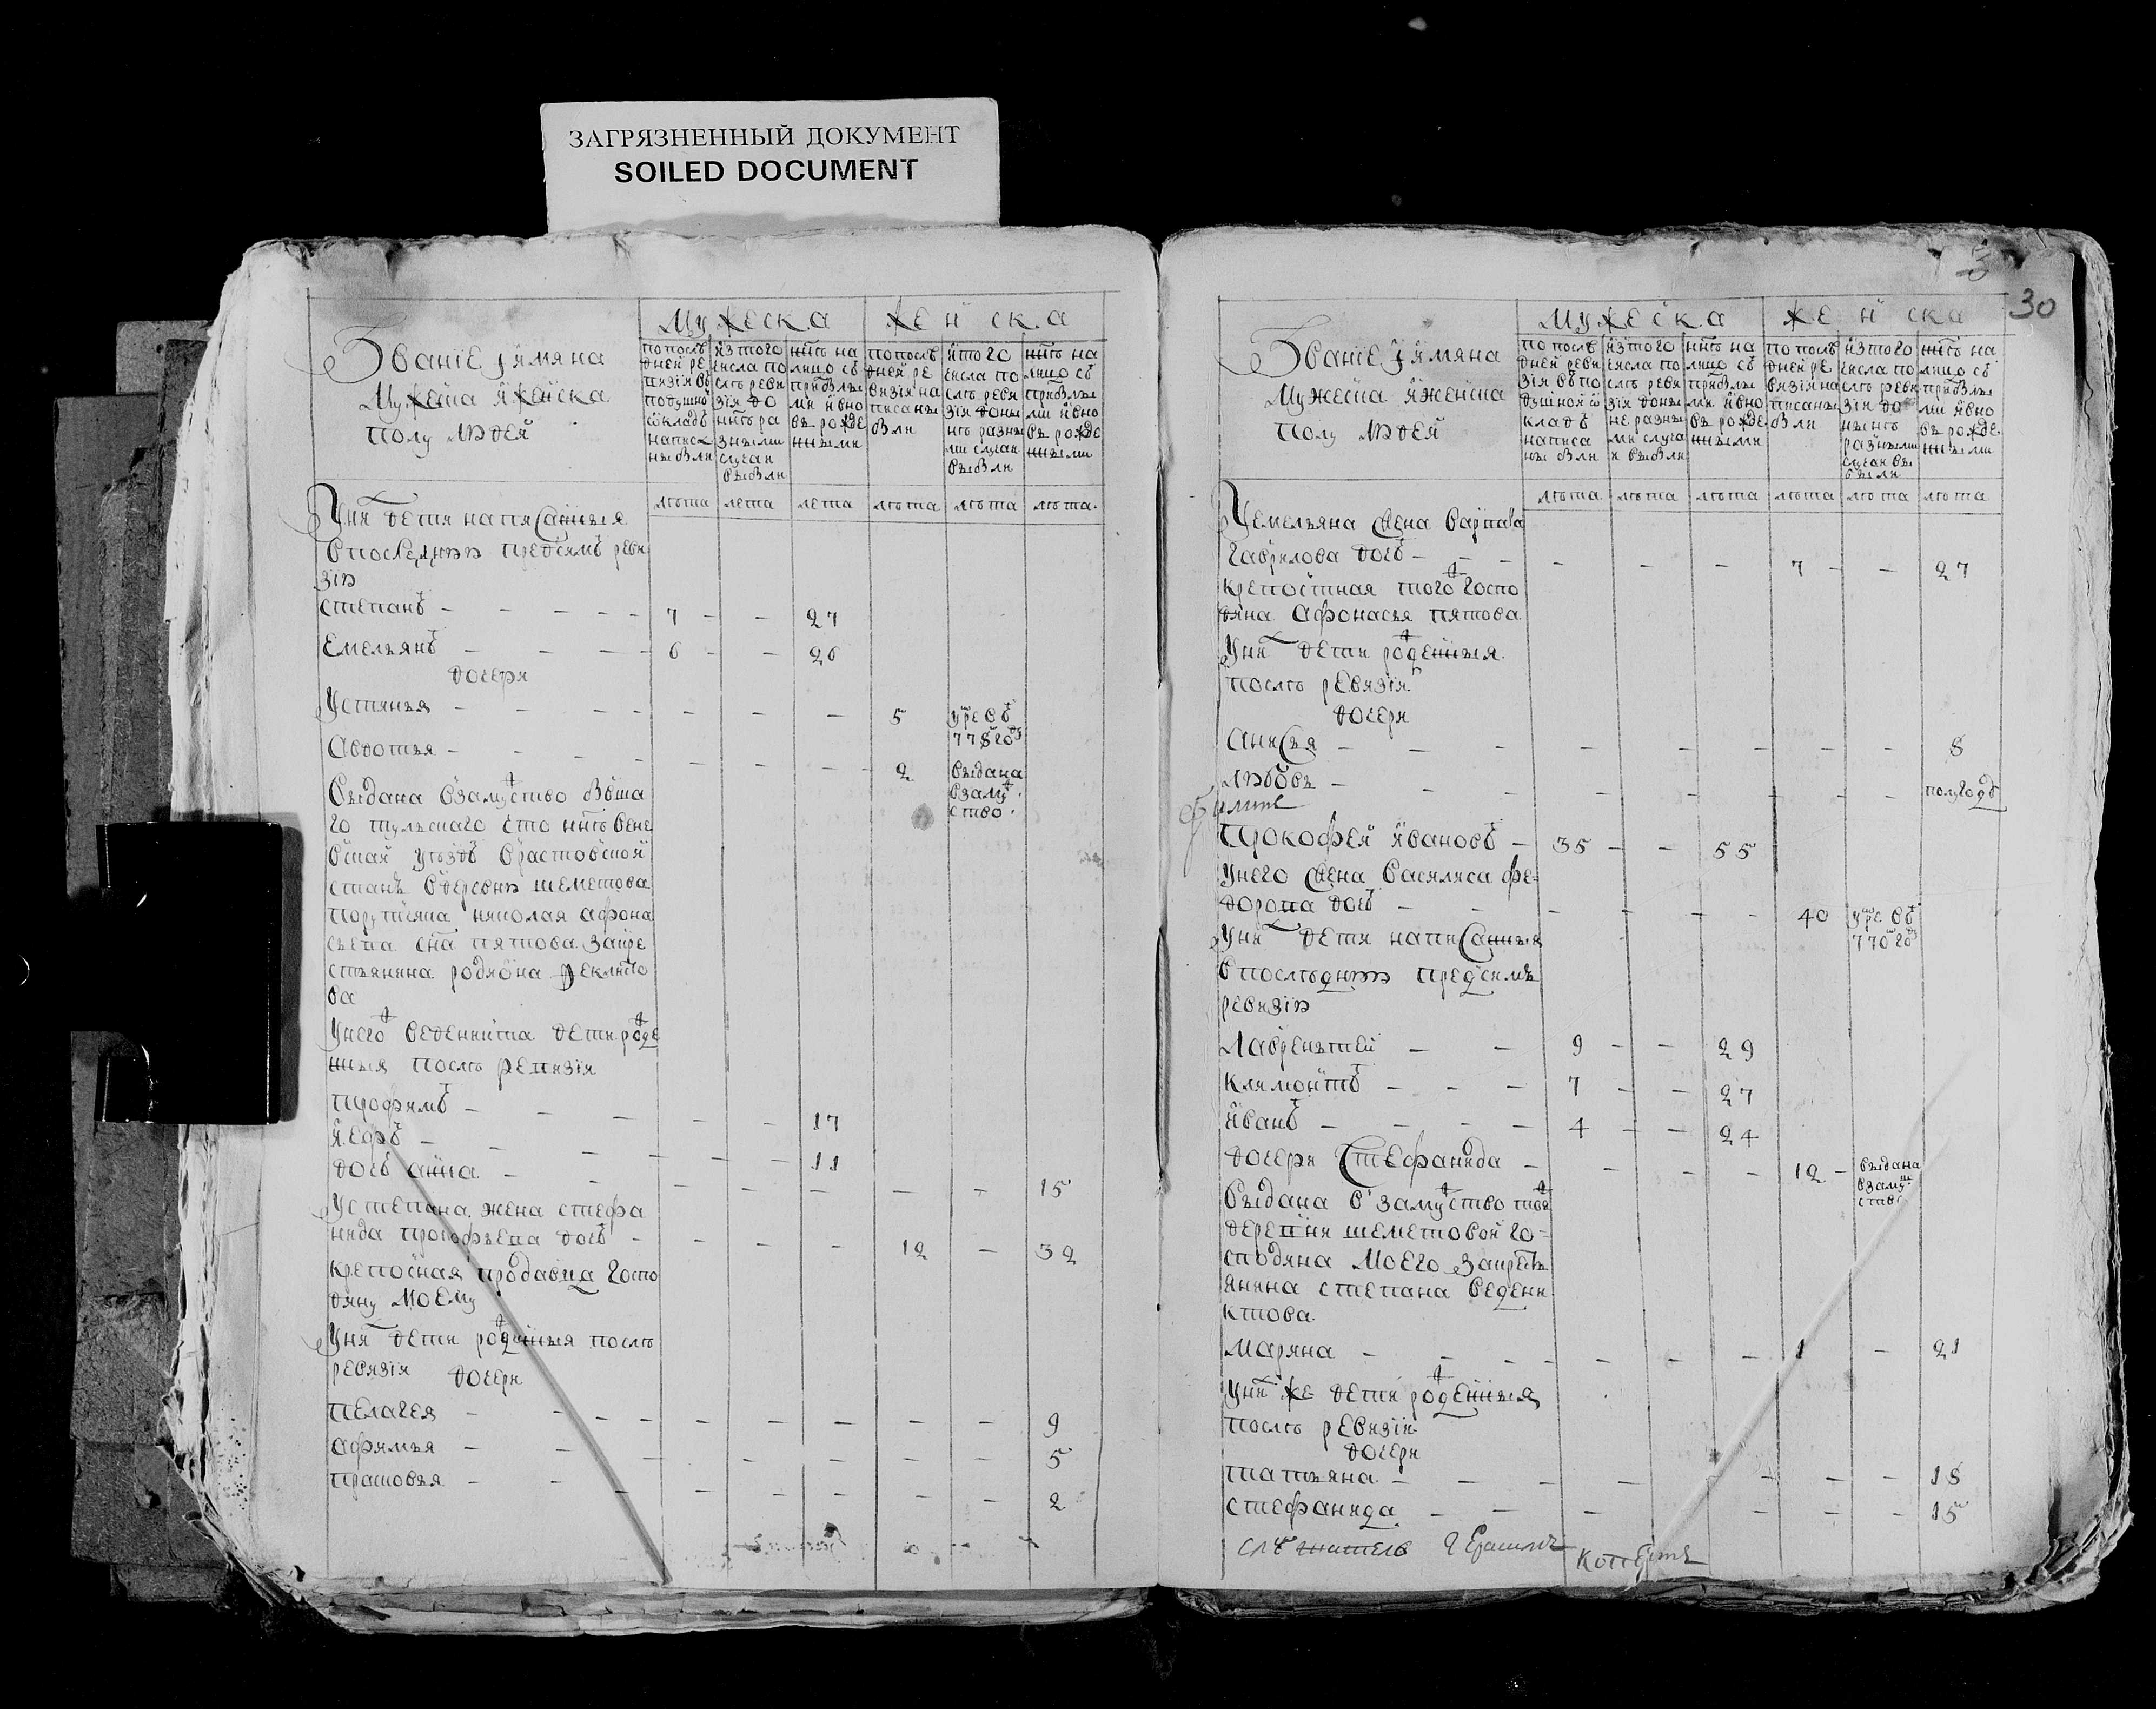 ЗАГРЯЗНЕННЫЙ ДОКУМЕНТ
SOILED DOCUMENT
Званiе iимяна
Мужеска иженска
полу людей
Мужеска
женска
по послѣ
дней ре
визiи въ
подушно
окладъ
написа
ны были
из того
числа по
слѣ реви
зiи до
нынѣ ра
зными
случаи
выбыли
нынѣ на
лицо съ
прибылы
ми и вно
вь рожде
нными
по послѣ
дней ре
визiи на
писаны
были
ис того
числа по
слѣ реви
зiи доны
нѣ разны
ми случаи
выбыли
нынѣ на
лицо съ
прибылы
ми и вно
вь рожде
нными
лѣта лета лета лѣта лѣта лѣта
Уни дети написанныя
впоследнюю предсимъ реви
зiю
степанъ 7 27
Емельянъ 6 26
дочери
Устинья 5 умре въ
778 год
Авдотья 2 выдана
взаму
ство
Выдана взамуство
го тульскаго что нынѣ вене
вской уѣздъ врастовской
станъ вдеревню шеметова
порутчика николая афона
сьева сна пятова закре
стьянина родиона феклисто
ва
Унего веденихта дети рожде
нныя послѣ ревизiи
трофимъ 17
11
дочь анна 15
Устепана жена стефа
нида прокофьева дочь 12 32
крепосная продавца госпо
дину моему
Уни дети рожденныя послѣ
ревизiи дочери
пелагея 9
афимья 5
прасковья 2
30
Званiе iимяна
Мужеска иженска
полу людей
Мужеска
женска
по послѣ
дней реви
зiи въ по
душной о
кладъ
написа
ны были
из того
числа по
слѣ реви
зiи доны
не разны
ми случа
и выбыли
нынѣ на
лицо съ
прибылы
ми и вно
вь рожде
нными
по послѣ
дней ре
визiи на
писаны
были
из того
числа по
слѣ реви
зiи до
нынѣ
разными
случаи вы
были
нынѣ на
лицо съ
прибылы
ми и вно
вь рожде
нными
лѣта лѣта лѣта лѣта лѣта лѣта
Уемельяна жена варвара
гаврилова дочь 7 27
крепостная того госпо
дина афонасья пятова
Уни дети рожденныя
послѣ ревизiи
дочери
анисья 8
любовь полугоду
прокофей ивановъ 35 55
Унего жена василиса фе
дорова дочь 40 умре въ
770 году
Уни дети написанныя
впослѣднюю предсимъ
ревизiю
Лаврентей 9 29
климонтъ 7 27
иванъ 4 24
дочери стефанида 12 выдана
взаму
ство
Выдана взамуство тое
деревни шеметовой го
сподина моего закресть
янина степана ведени
ктова
марина 1 21
Уни же дети рожденныя
послѣ ревизiи
дочери
татьяна 18
стефанида 15
служитель Герасимъ